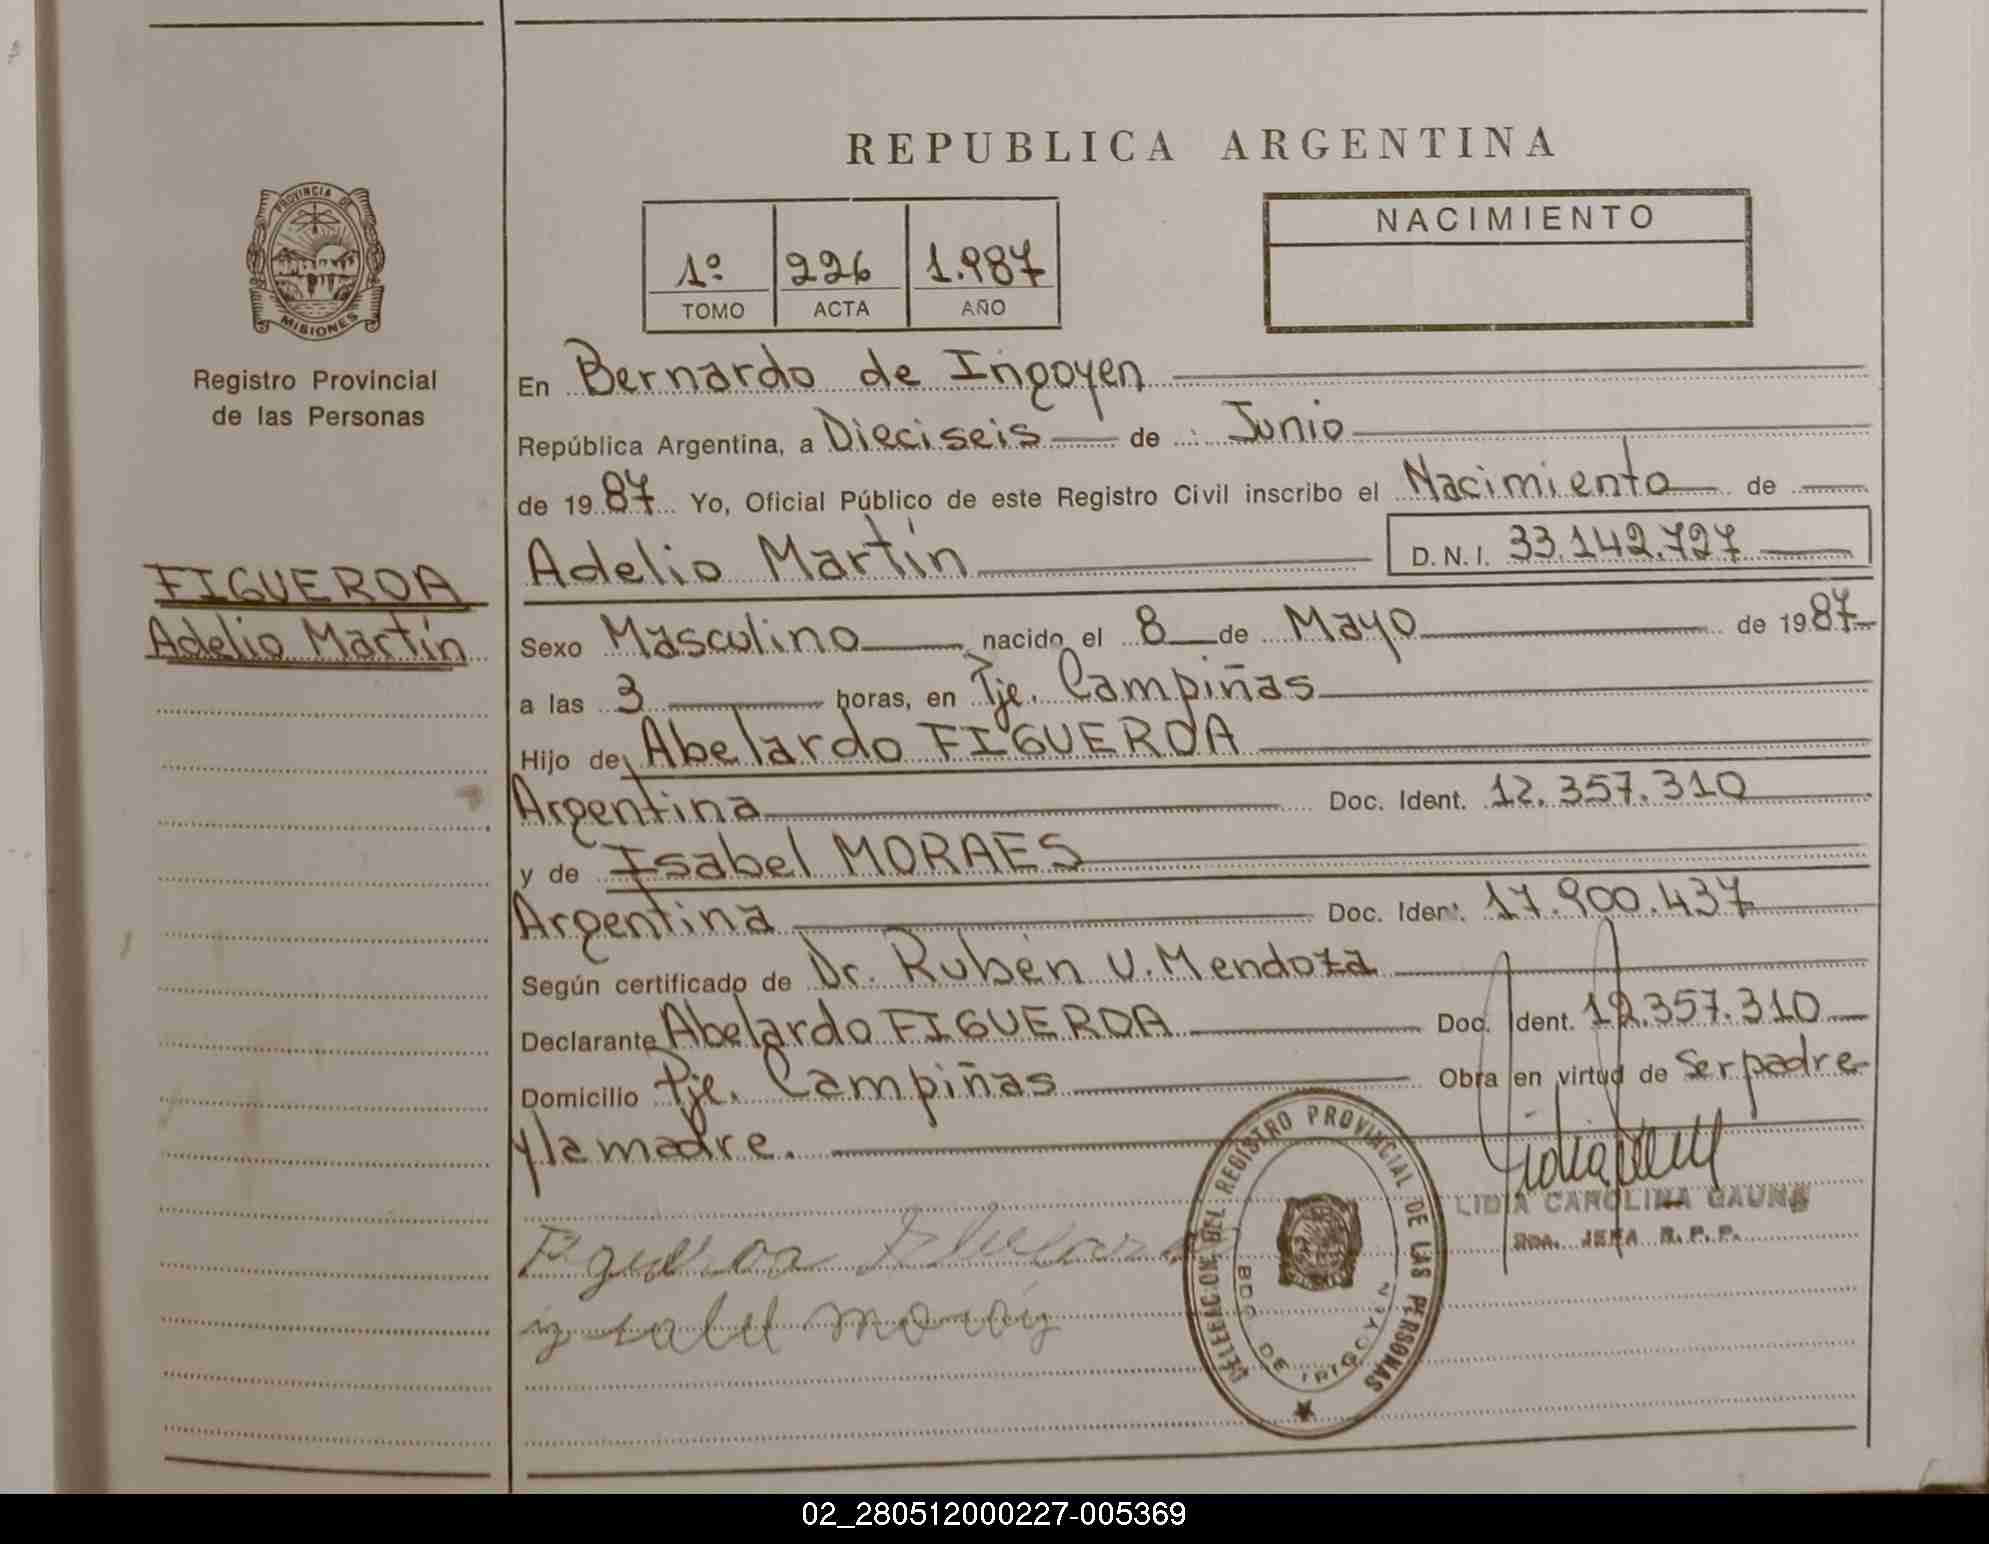 REPUBLICA ARGENTINA
PROVINCIA DE
MISIONES
Registro Provincial
de las Personas
1º 226 1.987
TOMO ACTA AÑO
NACIMIENTO
En Bernardo de Irigoyen
República Argentina, a Dieciseis de Junio
de 1987 Yo, Oficial Público de este Registro Civil inscribo el Nacimiento de
FIGUEROA
Adelio Martín
Adelio Martín D.N.I. 33.142.727
Sexo Masculino nacido el 8 de Mayo de 1987
a las 3 horas, en Pje. Campiñas
Hijo de Abelardo FIGUEROA
Argentina Doc. Ident. 12.357.310
y de Isabel MORAES
Argentina Doc. Ident. 17.900.437
Según certificado de Dr. Rubén V. Mendoza
Declarante Abelardo FIGUEROA Doc. Ident. 12.357.310
Domicilio Pje. Campiñas Obra en virtud de Ser padre
y la madre.
LIDIA CAROLINA GAUNA
2DA. JEFA R.P.P.
DELEGACION DEL REGISTRO PROVINCIAL DE LAS PERSONAS
BDO. DE IRIGOYEN
02_280512000227-005369